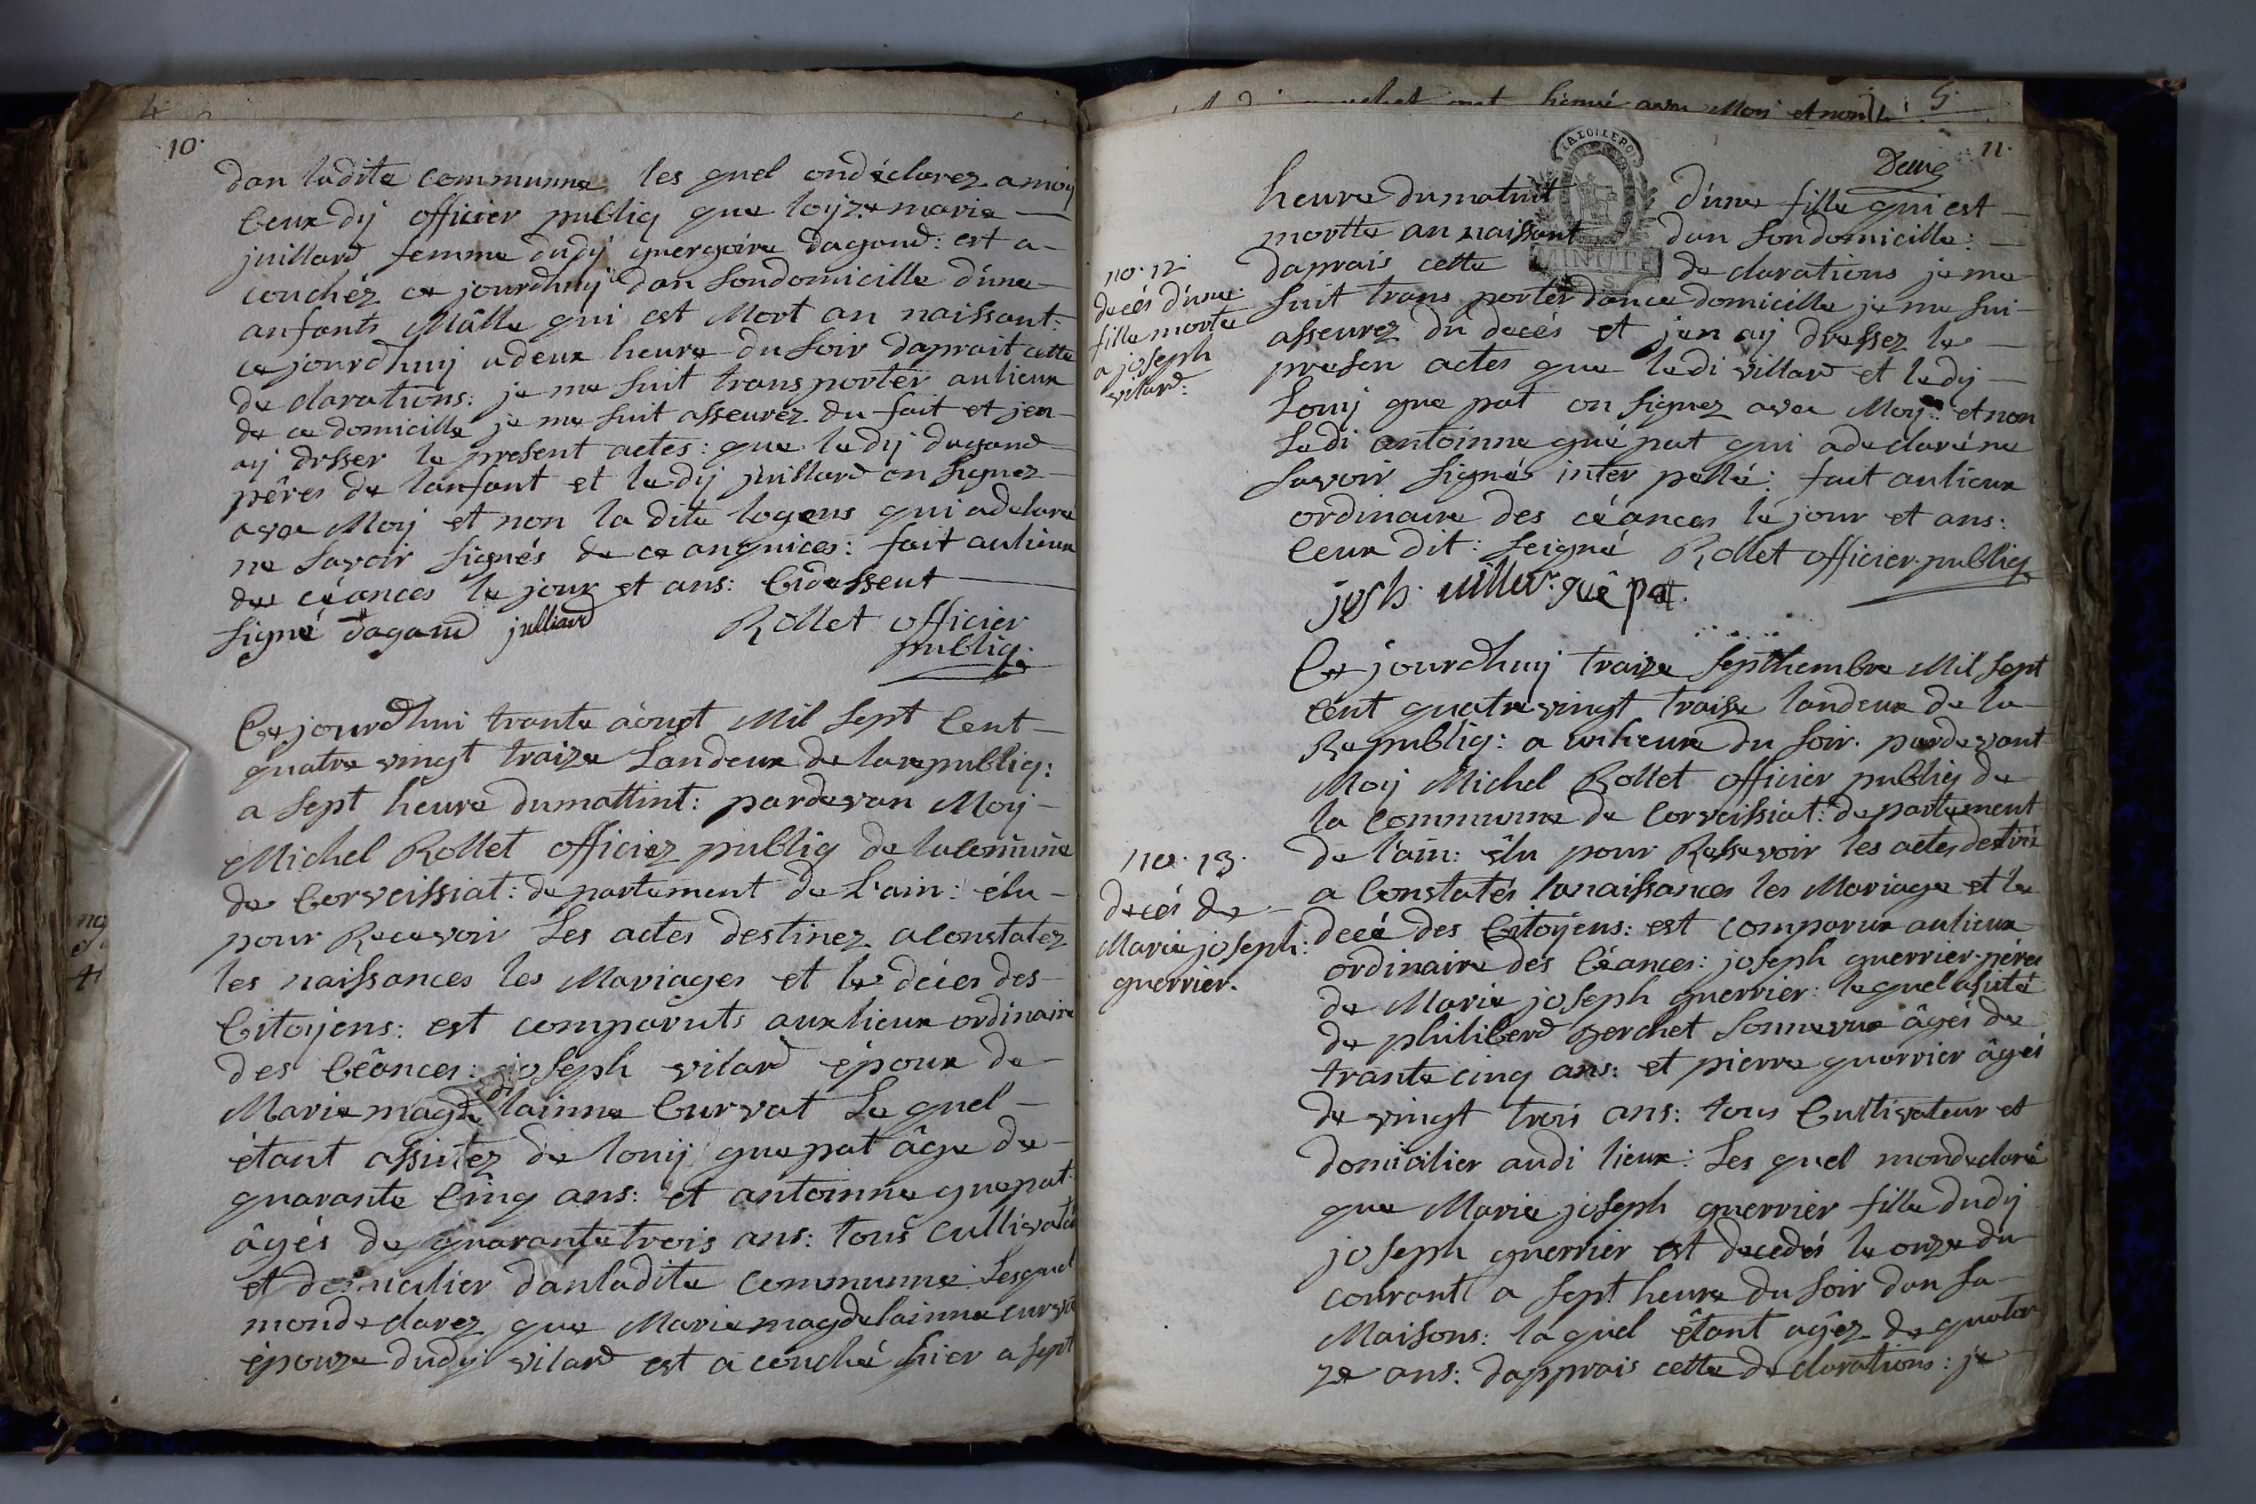 10.
dan ladite communne les quel ondéclarez a moij
Ceux dij officier publiq que loijze marie
juillard femme dudij guergoire dagand: est a-
couchéz ce jourdhuij dan Sondomicille d'une
anfants Mâlle qui est Mort an naissant:
ce jourdhuij adeux heure du soir daprait cette
de clarations: je me suit transporter aulieux
de ce domicille je me suit asseurez du fait et jen
aij drsser le present actes: que ledij dagand
pêres de lanfant et ledij juillard on signez
avec Moij et non la dite logens qui adclare
ne savoir signés de ce anquices: fait aulieux
des céances le jour et ans: Cidessent
signé dagand julliard Rollet officier
publiq.
Ce jourdhui trante àoust Mil sept Cent
quatre vingt traize Landeux de larepubliq:
a sept heure dumattint: pardevan Moij
Michel Rollet officiez publiq de lacomune
de Corveissiat: de partement de L'ain: élu
pour Recevoir Les actes destinez aConstatez
les naissances les Mariages et le déces des
Citoijens: est comparuts aux lieux ordinaire
des Céances: joseph vilard époux de
Marie magdelainne Curvat Le quel
étant assistez de louij guepat âge de
quarante Cinq ans: et antoinne guepat
âgés de quarante trois ans: tous cullivate
et domicilier danladite communne: Lesquel
monde clarez que Marie magdelainne curva
épouze dudij vilard est acouché hier a sept
hemé avec Moij et non
5
11.
Deux
heure dumatint d'une fille qui est
mortte an naissant dan Sondomicille:
no. 12.
decés d'une
fille morte
a joseph
vilard:
daprais cette de clarations je me
suit trans porter dance domicille je me sui
asseurez du decés et jen aij dressez le
presen actes que ledi villard et ledij
Louij gue pat on signez avec Moij: et non
Ledi antoinne guépat qui adeclaréne
savoir signés inter pellé: fait aulieux
ordinaire des céances le jour et ans:
Ceux dit: seigné Rollet officier publiq
josh. viller. guêpat.
Ce jourdhuij traize septhembre Mil sept
cént quatre vingt traise landeux de la
Republiq: a unheure du soir. pardevant
Moij Michel Rollet officier publiq de
la Communne de Corveissiat: departement
no. 13.
decés de
Marie joseph:
guerrier.
de l'ain: élu pour Ressevoir les actes destiné
a Constatés lanaissances les Mariage et le
decé des Citoijens: est comparux aulieux
ordinaire des Céances: joseph guerrier péres
de Marie joseph guerrier: lequel asisté
de philiberd perchet Sonnevux âgés de
trante cinq ans: et pierre guerrier âgés
de vingt trois ans: tous Cultivateur et
domicilier audi lieux: Les quel monde claré
que Marie joseph guerrier fille dudij
joseph guerrier est decedés le onze du
courant a sept heure du soir dan sa
Maisons: la quel êtant agéz de quator
ze ans: dapprais cette de clarations: je